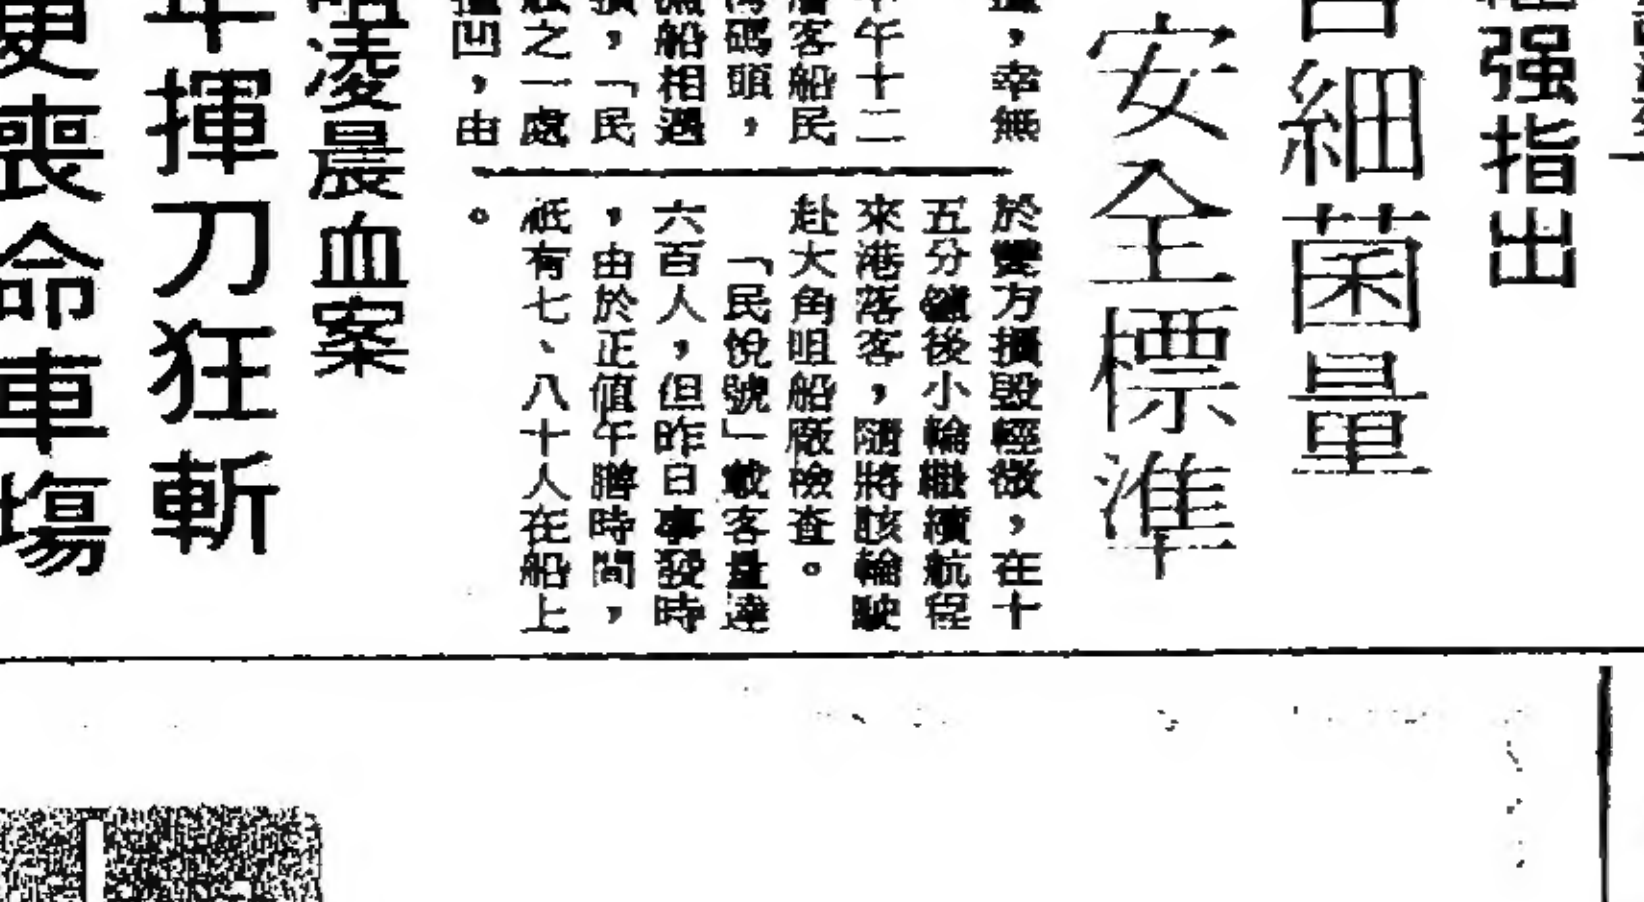 强指出
細菌量
安全標準
，幸無
午十二
客船民
碼頭，
船相遇
，「民
之一處
凹，由
於雙方損毀輕微，在十
五分鐘後小輪繼續航程
來港落客，隨將該輪駛
赴大角咀船廠檢查。
「民悅號」載客量達
六百人，但昨日事發時
，由於正值午膳時間，
祇有七、八十人在船上
。
凌晨血案
揮刀狂斬
喪命車場